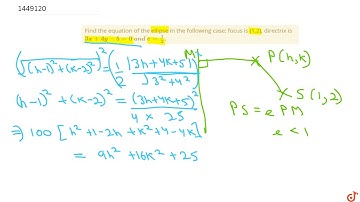 1449120
Find the equation of the ellipse in the following case: focus is (1,2), directrix is
3x + 4y - 5 = 0 and e = 1/2
(√((h-1)² + (k-2)²))² = (1/2 |3h+4k+5|/√(3²+4²))²
(h-1)² + (k-2)² = (3h+4k+5)²/(4 × 25)
⇒ 100 [h² + 1 - 2h + k² + 4 - 4k]
= 9h² + 16k² + 25
M
P(h,k)
S(1,2)
PS = e PM
e < 1